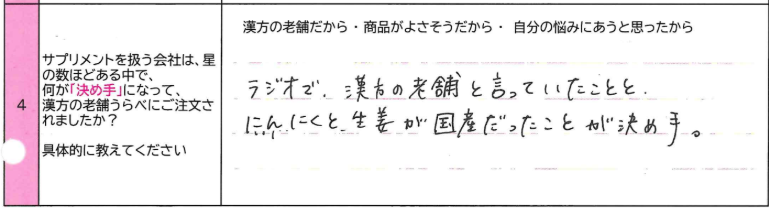 4
サプリメントを扱う会社は、星
の数ほどある中で、
何が「決め手」になって、
漢方の老舗うらべにご注文さ
れましたか?
具体的に教えてください
漢方の老舗だから・商品がよさそうだから・ 自分の悩みにあうと思ったから
ラジオで、漢方の老舗と言っていたことと、
にんにくと、生姜が国産だったことが決め手。